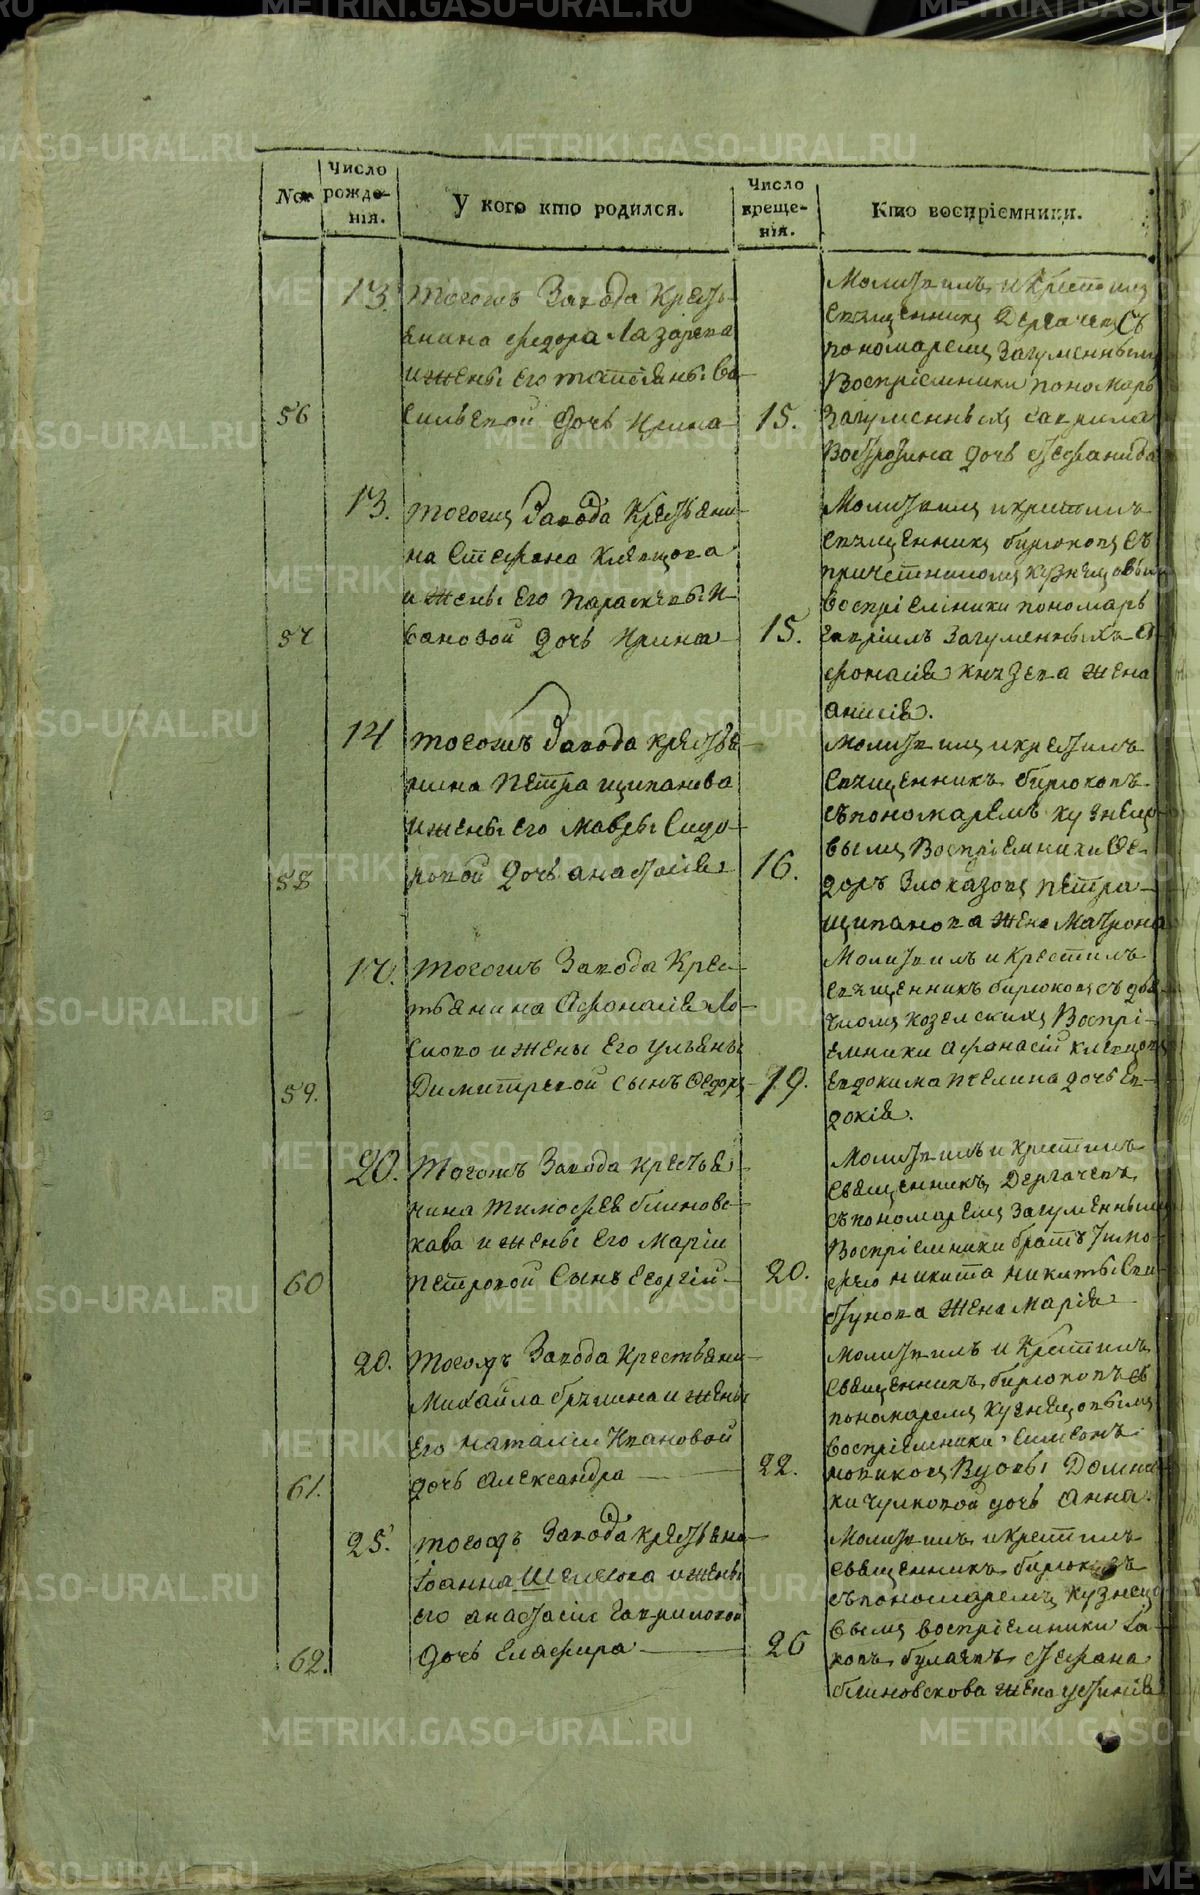 No.
Число рожде-
нія.
У кого кто родился.
Число
креще-
нія.
Кто воспріемники.
56
13.
тогожъ Завода Кресть-
енина Федора Лазарева
и жены его татіяны Ва-
сильевой дочь Ирина
15.
Молитвилъ и Крестилъ
Священникъ Дергачевъ съ
пономаремъ Загуменнымъ
Воспріемники пономарь
Загуменныхъ Гаврила
дочь Стефанида
57
13.
тогожъ Завода Крестьяни-
на Стефана Клевцова
и жены Его Параскевы И-
вановой дочь Ирина
15.
Молитвилъ и крестилъ
Священникъ бирюковъ съ
причетникомъ Кузнецовымъ
Воспріемники пономарь
Гавріилъ Загуменныхъ А-
фонасія Князева жена
анисія.
58
14
тогожъ Завода крестья-
нина Петра щипанова
и жены его Мавры Сидо-
ровой дочь анастасія
16.
Молитвилъ и крестилъ
Священникъ бирюковъ
съ пономаремъ Кузнецо-
вымъ Воспріемники Ѳе-
доръ Злоказовъ Петра
щипанова жена Матрона
59.
17.
тогожъ Завода Крес-
тьянина Афонасія Ло-
скова и жены Его ульяны
Димитревой сынъ Ѳедоръ
19.
Молитвилъ и Крестилъ
Священникъ бирюковъ съ дья-
чкомъ Козельскихъ Воспрі-
емники афанасій клевцовъ
Евдокима пчелина дочь Ев-
докія.
60
20.
Тогожъ Завода крестья-
нина тимофея блиновс-
кава и жены Его Маріи
Петровой Сынъ Георгій
20.
Молитвилъ и крестилъ
Священникъ Дергачевъ
съ пономаремъ Загуменнымъ
Воспріемники братъ Тимо-
фею никита никиты
жена Марія
61.
20.
тогожъ Завода крестьяни-
Михайла и жены
Его наталіи Ивановой
дочь александра
22.
Молитвилъ и Крестилъ
Священникъ бирюковъ съ
пономаремъ Кузнецовымъ
воспріемники Симеонъ
новиковъ Вдовы Домни-
ки чулковой дочь анна.
62.
25.
тогожъ Завода крестьяни-
Іоанна Шелехова и жены
его анастасіи Гавриловой
дочь Глафира
26
Молитвилъ и крестилъ
Священникъ бирюковъ
съ пономаремъ Кузнецо-
вымъ воспріемники Іа-
ковъ булаевъ Стефана
блиновскова жена устинія
METRIKI.GASO-URAL.RU